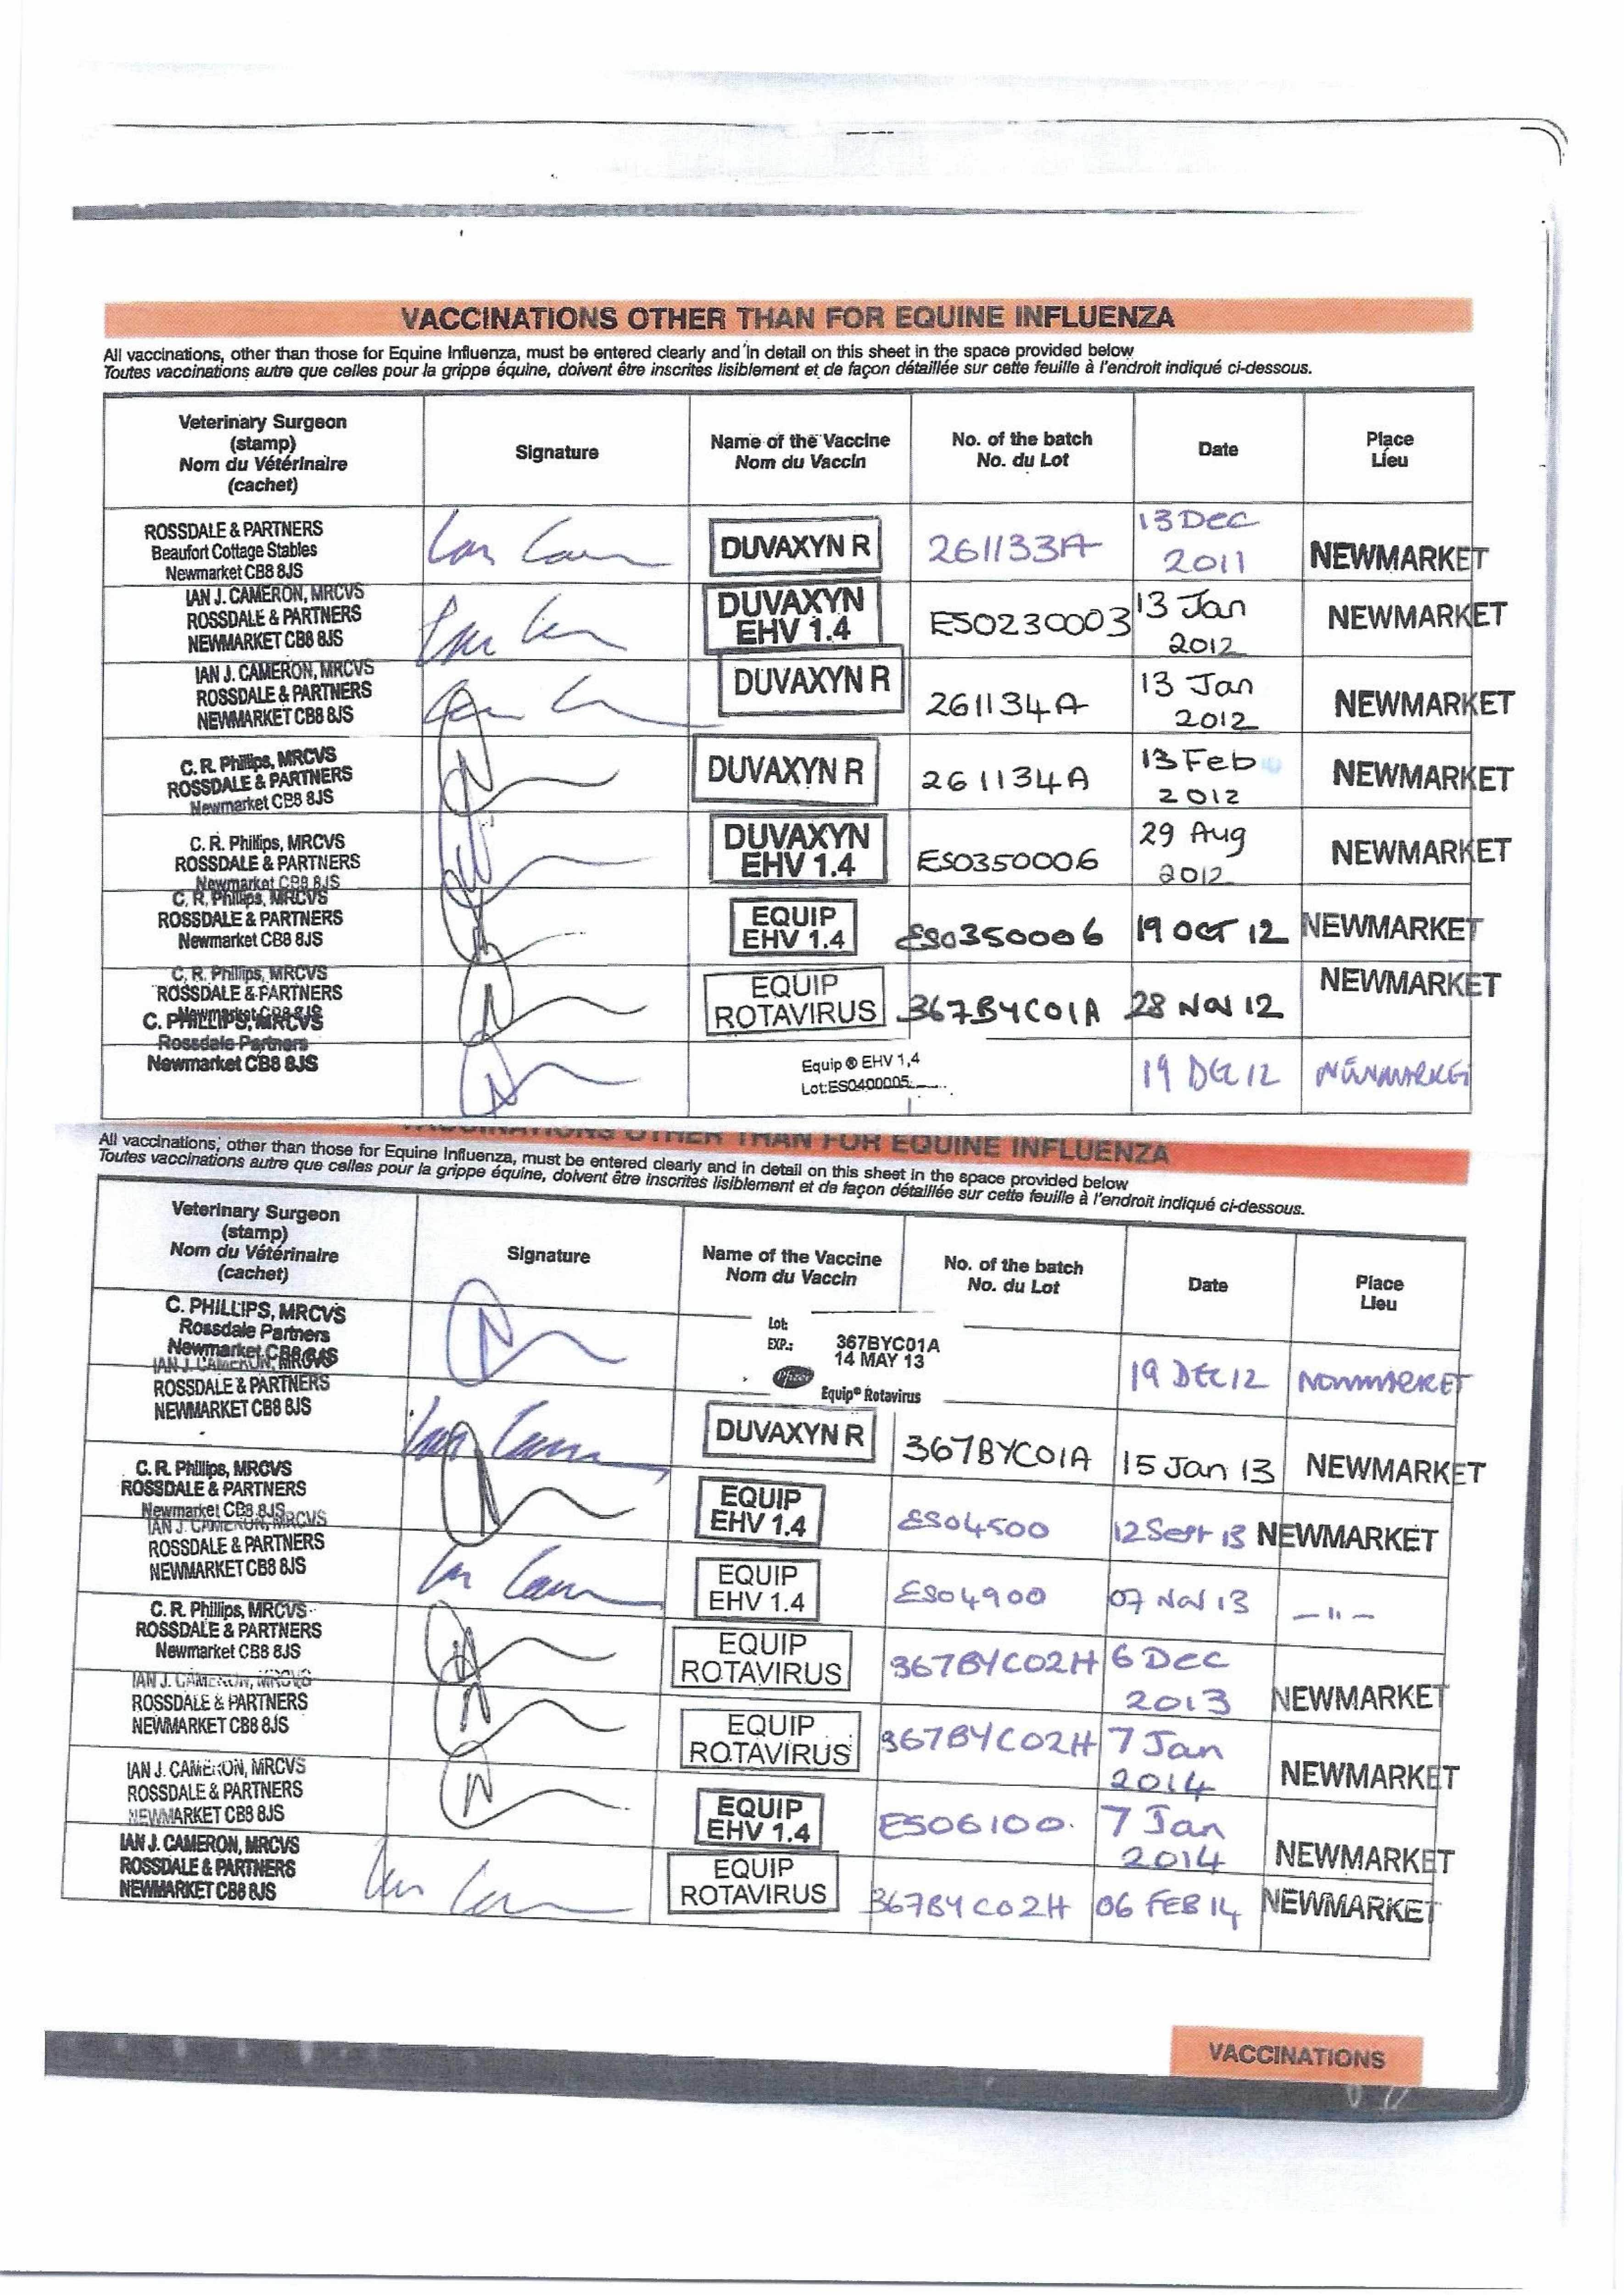 VACCINATIONS OTHER THAN FOR EQUINE INFLUENZA
All vaccinations, other than those for Equine Influenza, must be entered clearly and in detail on this sheet in the space provided below
Toutes vaccinations autre que celles pour la grippe équine, doivent être inscrites lisiblement et de façon détaillée sur cette feuille à l'endroit indiqué ci-dessous.
Veterinary Surgeon
(stamp)
Nom du Vétérinaire
(cachet)
Signature
Name of the Vaccine
Nom du Vaccin
No. of the batch
No. du Lot
Date
Place
Lieu
ROSSDALE & PARTNERS
Beaufort Cottage Stables
Newmarket CB8 8JS
DUVAXYN R
261133A
13 Dec
2011
NEWMARKET
IAN J. CAMERON, MRCVS
ROSSDALE & PARTNERS
NEWMARKET CB8 8JS
DUVAXYN
EHV 1.4
ES0230003
13 Jan
2012
NEWMARKET
IAN J. CAMERON, MRCVS
ROSSDALE & PARTNERS
NEWMARKET CB8 8JS
DUVAXYN R
261134A
13 Jan
2012
NEWMARKET
C. R. Phillips, MRCVS
ROSSDALE & PARTNERS
Newmarket CB8 8JS
DUVAXYN R
261134A
13 Feb
2012
NEWMARKET
C. R. Phillips, MRCVS
ROSSDALE & PARTNERS
Newmarket CB8 8JS
DUVAXYN
EHV 1.4
ES0350006
29 Aug
2012
NEWMARKET
C. R. Phillips, MRCVS
ROSSDALE & PARTNERS
Newmarket CB8 8JS
EQUIP
EHV 1.4
ES0350006
19 OCT 12
NEWMARKET
C. R. Phillips, MRCVS
ROSSDALE & PARTNERS
Newmarket CB8 8JS
EQUIP
ROTAVIRUS
367BYC01A
28 Nov 12
NEWMARKET
C. PHILLIPS, MRCVS
Rossdale Partners
Newmarket CB8 8JS
Equip ® EHV 1,4
Lot:ES0400005
19 DEC 12
NEWMARKET
VACCINATIONS OTHER THAN FOR EQUINE INFLUENZA
All vaccinations, other than those for Equine Influenza, must be entered clearly and in detail on this sheet in the space provided below
Toutes vaccinations autre que celles pour la grippe équine, doivent être inscrites lisiblement et de façon détaillée sur cette feuille à l'endroit indiqué ci-dessous.
Veterinary Surgeon
(stamp)
Nom du Vétérinaire
(cachet)
Signature
Name of the Vaccine
Nom du Vaccin
No. of the batch
No. du Lot
Date
Place
Lieu
C. PHILLIPS, MRCVS
Rossdale Partners
Newmarket CB8 8JS
Lot: 367BYC01A
EXP.: 14 MAY 13
Pfizer
Equip® Rotavirus
19 DEC 12
NEWMARKET
IAN J. CAMERON, MRCVS
ROSSDALE & PARTNERS
NEWMARKET CB8 8JS
DUVAXYN R
367BYC01A
15 Jan 13
NEWMARKET
C. R. Phillips, MRCVS
ROSSDALE & PARTNERS
Newmarket CB8 8JS
EQUIP
EHV 1.4
ES04500
12 Sept 13
NEWMARKET
IAN J. CAMERON, MRCVS
ROSSDALE & PARTNERS
NEWMARKET CB8 8JS
EQUIP
EHV 1.4
ES04900
07 Nov 13
– 11 –
C. R. Phillips, MRCVS
ROSSDALE & PARTNERS
Newmarket CB8 8JS
EQUIP
ROTAVIRUS
367BYC02H
6 Dec
2013
NEWMARKET
IAN J. CAMERON, MRCVS
ROSSDALE & PARTNERS
NEWMARKET CB8 8JS
EQUIP
ROTAVIRUS
367BYC02H
7 Jan
2014
NEWMARKET
IAN J. CAMERON, MRCVS
ROSSDALE & PARTNERS
NEWMARKET CB8 8JS
EQUIP
EHV 1.4
ES06100.
7 Jan
2014
NEWMARKET
IAN J. CAMERON, MRCVS
ROSSDALE & PARTNERS
NEWMARKET CB8 8JS
EQUIP
ROTAVIRUS
367BYC02H
06 FEB 14
NEWMARKET
VACCINATIONS